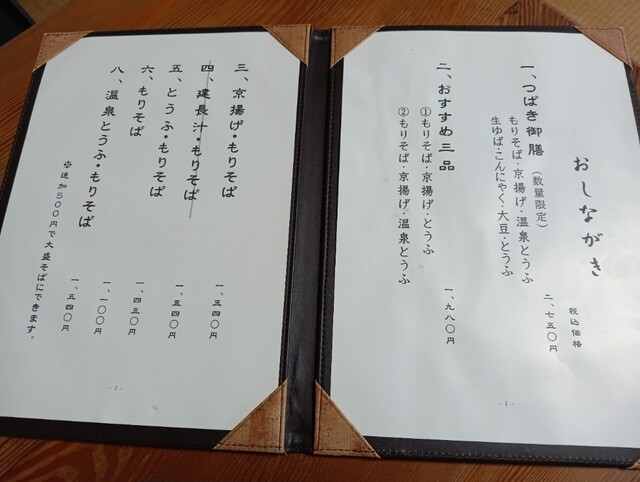 おしながき
税込価格
一、つばき御膳（数量限定）
二、七五〇円
もりそば・京揚げ・温泉とうふ
生ゆば・こんにゃく・大豆・とうふ
二、おすすめ三品
一、九八〇円
①もりそば・京揚げ・とうふ
②もりそば・京揚げ・温泉とうふ
- 1 -
三、京揚げ・もりそば
一、五四〇円
四、建長汁・もりそば
一、五四〇円
五、とうふ・もりそば
一、四三〇円
六、もりそば
一、一〇〇円
八、温泉とうふ・もりそば
一、五四〇円
☆追加500円で大盛そばにできます。
- 2 -